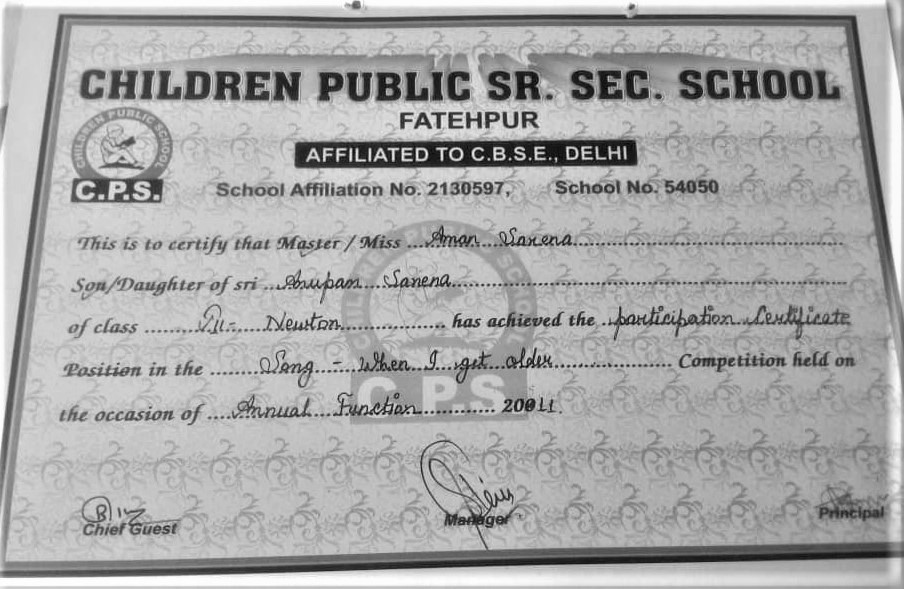 CHILDREN PUBLIC SR. SEC. SCHOOL
FATEHPUR
AFFILIATED TO C.B.S.E., DELHI
CHILDREN PUBLIC SCHOOL
C.P.S.
School Affiliation No. 2130597, School No. 54050
This is to certify that Master / Miss ...Aman Saxena...
Son/Daughter of sri ...Anupam Saxena...
of class ...VII - Newton... has achieved the ...participation Certificate
Position in the ...Song - When I get older... Competition held on
the occasion of ...Annual Function... 2011.
CHILDREN PUBLIC SCHOOL
C.P.S
Chief Guest
Manager
Principal